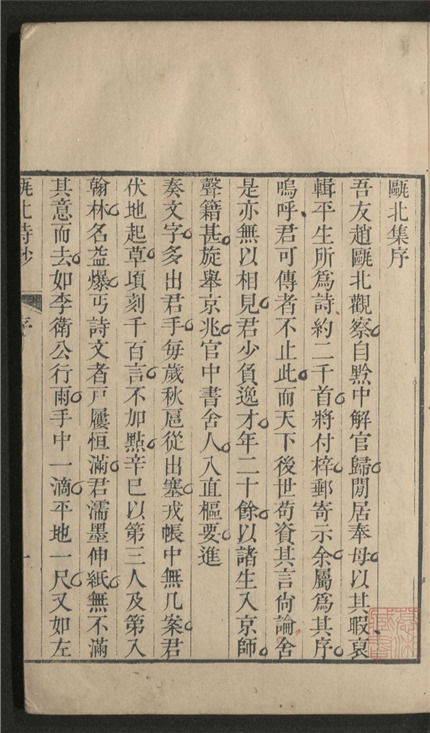 甌北集序
吾友趙甌北觀察自黔中解官歸閒居奉母以其暇裒
輯平生所爲詩約二千首將付梓郵寄示余屬爲其序
嗚呼君可傳者不止此而天下後世苟資其言尙論舍
是亦無以相見君少負逸才年二十餘以諸生入京師
聲籍甚旋舉京兆官中書舍人入直樞要進
奏文字多出君手每歲秋扈從出塞戎帳中無几案君
伏地起草頃刻千百言不加點辛巳以第三人及第入
翰林名益爆丐詩文者戸屨恒滿君濡墨伸紙無不滿
其意而去如李衛公行雨手中一滴平地一尺又如左
甌北詩鈔
序
一